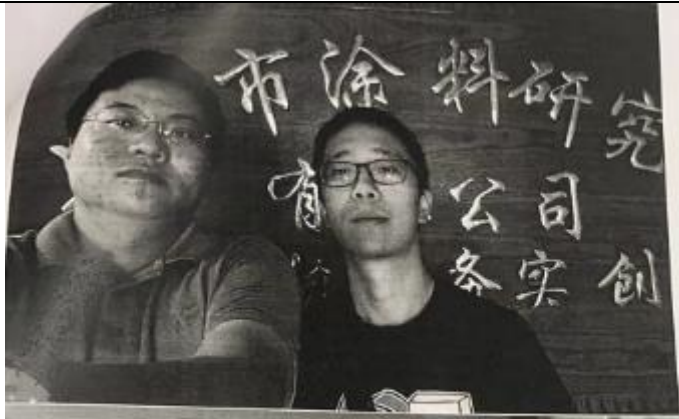 市涂料研究
有 公司
务实 创